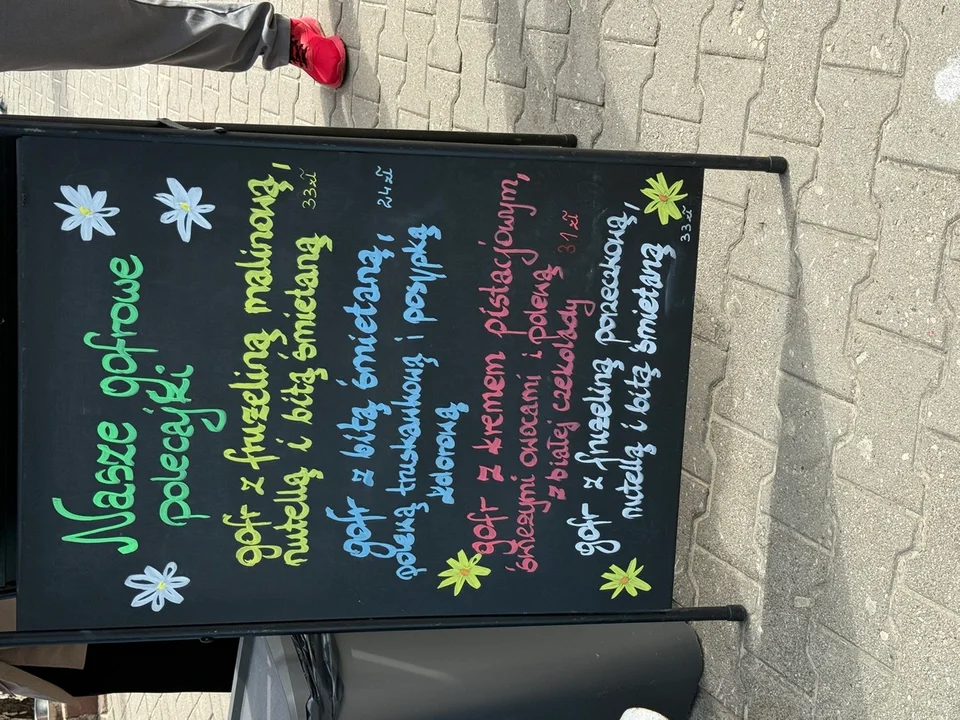 Nasze gofrowe
polecajki
gofr z frużeliną malinową,
nutellą i bitą śmietaną 33zł
gofr z bitą śmietaną, 24zł
polewą truskawkową i posypką
kolorową
gofr z kremem pistacjowym,
świeżymi owocami i polewą 31zł
z białej czekolady
gofr z frużeliną porzeczkową,
nutellą i bitą śmietaną 33zł